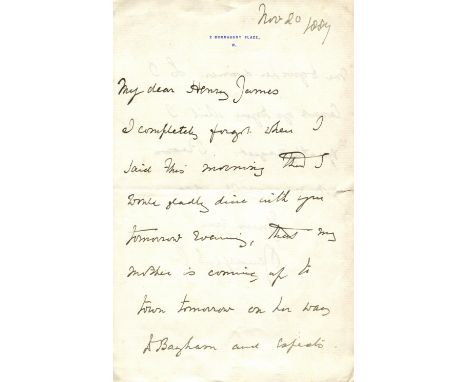 Nov 20/1887
2 CONNAUGHT PLACE,
W.
My dear Henry James
I completely forgot when I
said this morning that I
would gladly dine with you
tomorrow evening, that my
mother is coming up to
town tomorrow on her way
to and expects